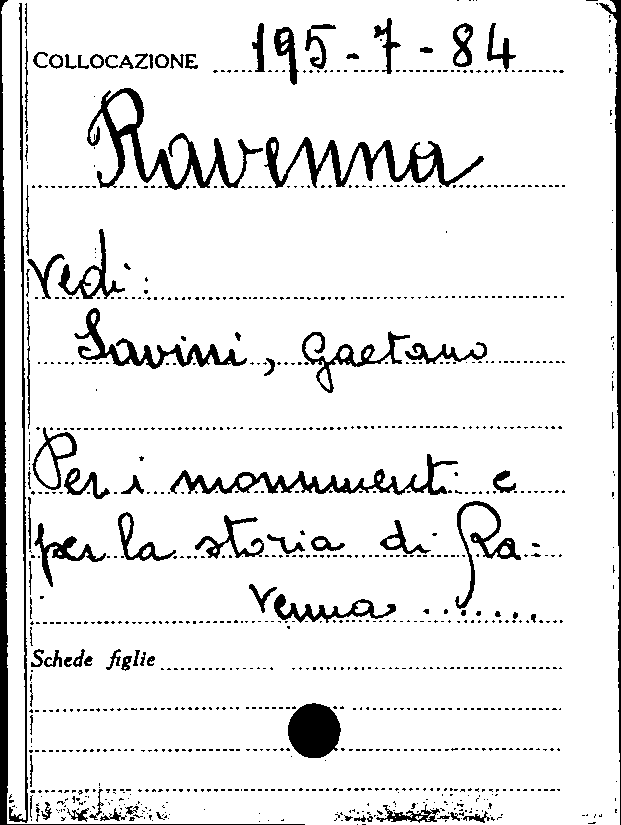 COLLOCAZIONE 195-7-84
Ravenna
Vedi:
Savini, Gaetano
Per i monumenti e
per la storia di Ra-
venna ........
Schede figlie